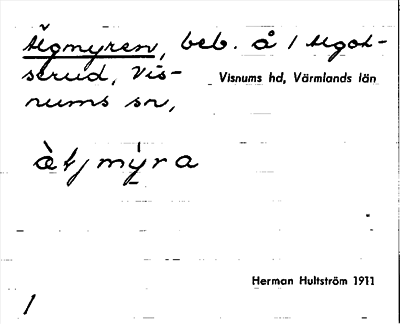 Älgmyren, beb. å 1 Algot-
serud, Vis-
nums sn,
Visnums hd, Värmlands län
mỳra
Herman Hultström 1911
1